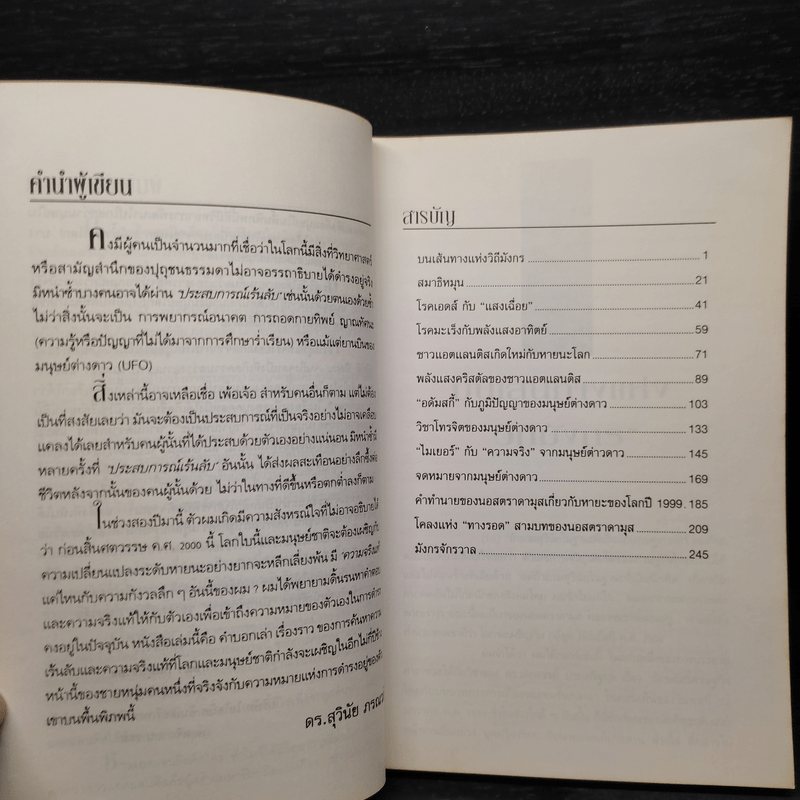 คำนำผู้เขียน
คงมีผู้คนเป็นจำนวนมากที่เชื่อว่าในโลกนี้มีสิ่งที่วิทยาศาสตร์
หรือสามัญสำนึกของปุถุชนธรรมดาไม่อาจอรรถาธิบายได้ดำรงอยู่จริง
มิหนำซ้ำบางคนอาจได้ผ่าน "ประสบการณ์เร้นลับ" เช่นนั้นด้วยตนเองด้วยซ้ำ
ไม่ว่าสิ่งนั้นจะเป็น การพยากรณ์อนาคต การถอดกายทิพย์ ญาณทัศนะ
(ความรู้หรือปัญญาที่ไม่ได้มาจากการศึกษาร่ำเรียน) หรือแม้แต่ยานบินของ
มนุษย์ต่างดาว (UFO)
สิ่งเหล่านี้อาจเหลือเชื่อ เพ้อเจ้อ สำหรับคนอื่นก็ตาม แต่ไม่ต้อง
เป็นที่สงสัยเลยว่า มันจะต้องเป็นประสบการณ์ที่เป็นจริงอย่างไม่อาจเคลือบ
แคลงได้เลยสำหรับคนผู้นั้นที่ได้ประสบด้วยตัวเองอย่างแน่นอน มิหนำซ้ำมี
หลายครั้งที่ "ประสบการณ์เร้นลับ" อันนั้น ได้ส่งผลสะเทือนอย่างลึกซึ้งต่อ
ชีวิตหลังจากนั้นของคนผู้นั้นด้วย ไม่ว่าในทางที่ดีขึ้นหรือตกต่ำลงก็ตาม
ในช่วงสองปีมานี้ ตัวผมเกิดมีความสังหรณ์ใจที่ไม่อาจอธิบายได้
ว่า ก่อนสิ้นศตวรรษ ค.ศ. 2000 นี้ โลกใบนี้และมนุษย์ชาติจะต้องเผชิญกับ
ความเปลี่ยนแปลงระดับหายนะอย่างยากจะหลีกเลี่ยงพ้น มี 'ความจริงแท้'
แค่ไหนกับความกังวลลึก ๆ อันนี้ของผม ? ผมได้พยายามดิ้นรนหาคำตอบ
และความจริงแท้ให้กับตัวเองเพื่อเข้าถึงความหมายของตัวเองในการดำรง
คงอยู่ในปัจจุบัน หนังสือเล่มนี้คือ คำบอกเล่า เรื่องราว ของการค้นหาความ
เร้นลับและความจริงแท้ที่โลกและมนุษย์ชาติกำลังจะเผชิญในอีกไม่กี่ปีข้าง
หน้านี้ของชายหนุ่มคนหนึ่งที่จริงจังกับความหมายแห่งการดำรงอยู่ของตัว
เขาบนพื้นพิภพนี้
ดร.สุวินัย
สารบัญ
บนเส้นทางแห่งวิถีมังกร 1
สมาธิหมุน 21
โรคเอดส์ กับ "แสงเฉื่อย" 41
โรคมะเร็งกับพลังแสงอาทิตย์ 59
ชาวแอตแลนติสเกิดใหม่กับหายนะโลก 71
พลังแสงคริสตัลของชาวแอตแลนติส 89
"อดัมสกี้" กับภูมิปัญญาของมนุษย์ต่างดาว 103
วิชาโทรจิตของมนุษย์ต่างดาว 133
"ไมเยอร์" กับ "ความจริง" จากมนุษย์ต่าวดาว 145
จดหมายจากมนุษย์ต่างดาว 169
คำทำนายของนอสตราดามุสเกี่ยวกับหายะของโลกปี 1999. 185
โคลงแห่ง "ทางรอด" สามบทของนอสตราดามุส 209
มังกรจักรวาล 245